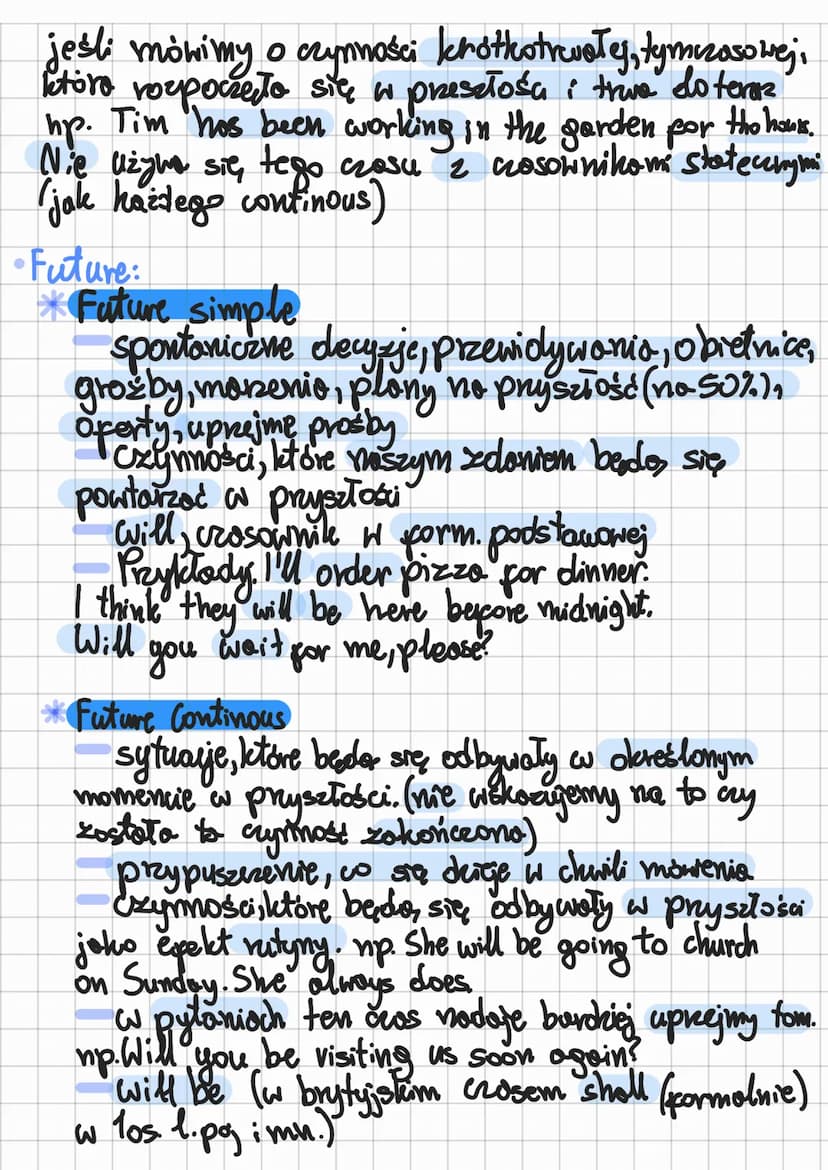 jeśli mówimy o czynności krótkotrwałej, tymczasowej,
która rozpoczęła się w przeszłości i trwa do teraz
np. Tim has been working in the garden for tho hours.
Nie używa się tego czasu z czasownikami statecznymi
(jak każdego continous)
• Future:
* Future simple
— spontaniczne decyzje, przewidywania, obietnice,
groźby, marzenia, plany na przyszłość (na 50%),
oferty, uprzejme prośby
— Czynności, które naszym zdaniem będą się
powtarzać w przyszłości
— will, czasownik w form. podstawowej
— Przykłady. I'll order pizza for dinner.
I think they will be here before midnight.
Will you wait for me, please?
* Future Continous
— sytuacje, które będą się odbywały w określonym
momencie w przyszłości. (nie wskazujemy na to czy
została to czynność zakończona)
— przypuszczenie, co się dzieje w chwili mówienia
— Czynności, które będą się odbywały w przyszłości
jako efekt rutyny. np. She will be going to church
on Sunday. She always does.
— w pytaniach ten czas nadaje bardziej uprzejmy tom.
np. Will you be visiting us soon again?
— will be (w brytyjskim czasem shall (formalnie)
w 1os. l. poj i mn.)